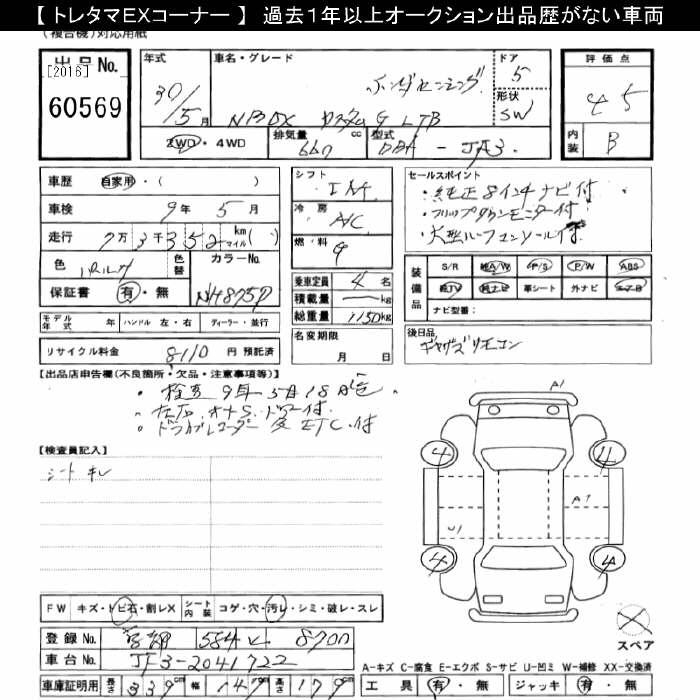 【トレタマEXコーナー】 過去1年以上オークション出品歴がない車両
(複合機)対応用紙
出品No.
[2016]
60569
年式
30/5月
車名・グレード
N BOX カスタム G LTB
ドア
5
形状
SW
評価点
4.5
内装
B
2WD・4WD
排気量
660 cc
型式
DBA - JF3
車歴 自家用・( )
車検 9年 5月
走行 7万3千352 km マイル( )
色 パール
色替
カラーNo.
NH875P
保証書 有・無
シフト
INA
冷房
A/C
燃料
G
乗車定員 4名
積載量 kg
総重量 1150kg
セールスポイント
・純正8インチナビ付
・フリップダウンモニター付
・大型ルーフコンソール付
装備品
S/R A/W P/S P/W ABS
純TV 純ナビ 革シート 外ナビ エアB
ナビ型番:
モデル年式 年 ハンドル 左・右 ディーラー・並行
リサイクル料金 8110円 預託済
名変期限
月 日
後日品
ギャザズリモコン
【出品店申告欄(不良箇所・欠品・注意事項等)】
・検査 9年 5月18日迄
・左右オートS.ドアー付
・ドラブレコーダー 後 ETC付
【検査員記入】
シートキレ
A1
4
4
A1
U1
4
4
スペア
FW キズ・トビ石・割レX シート内装 コゲ・穴・汚レ・シミ・破レ・スレ
登録No. 584 い 8700
車台No. JF3-2041722
車庫証明用 長さ 339cm 幅 147cm 高さ 179cm
A-キズ C-腐食 E-エクボ S-サビ U-凹ミ W-補修 XX-交換済
工具 有・無 ジャッキ 有・無